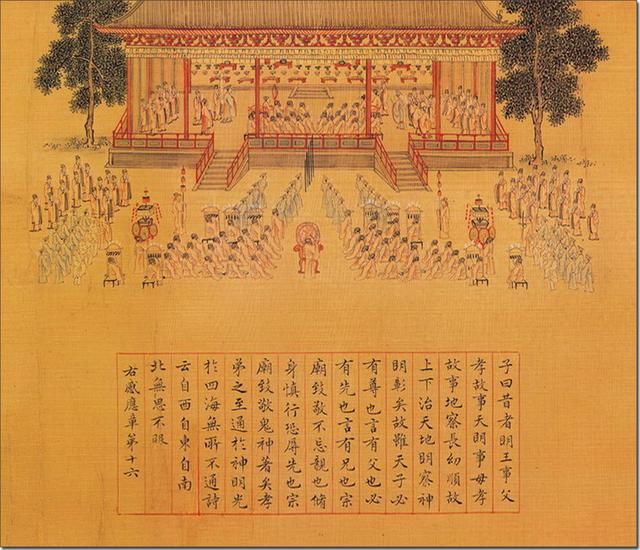 子曰昔者明王事父
孝故事天明事母孝
故事地察長幼順故
上下治天地明察神
明彰矣故雖天子必
有尊也言有父也必
有先也言有兄也宗
廟致敬不忘親也脩
身慎行恐辱先也宗
廟致敬鬼神著矣孝
弟之至通於神明光
於四海無所不通詩
云自西自東自南
北無思不服
右感應章第十六